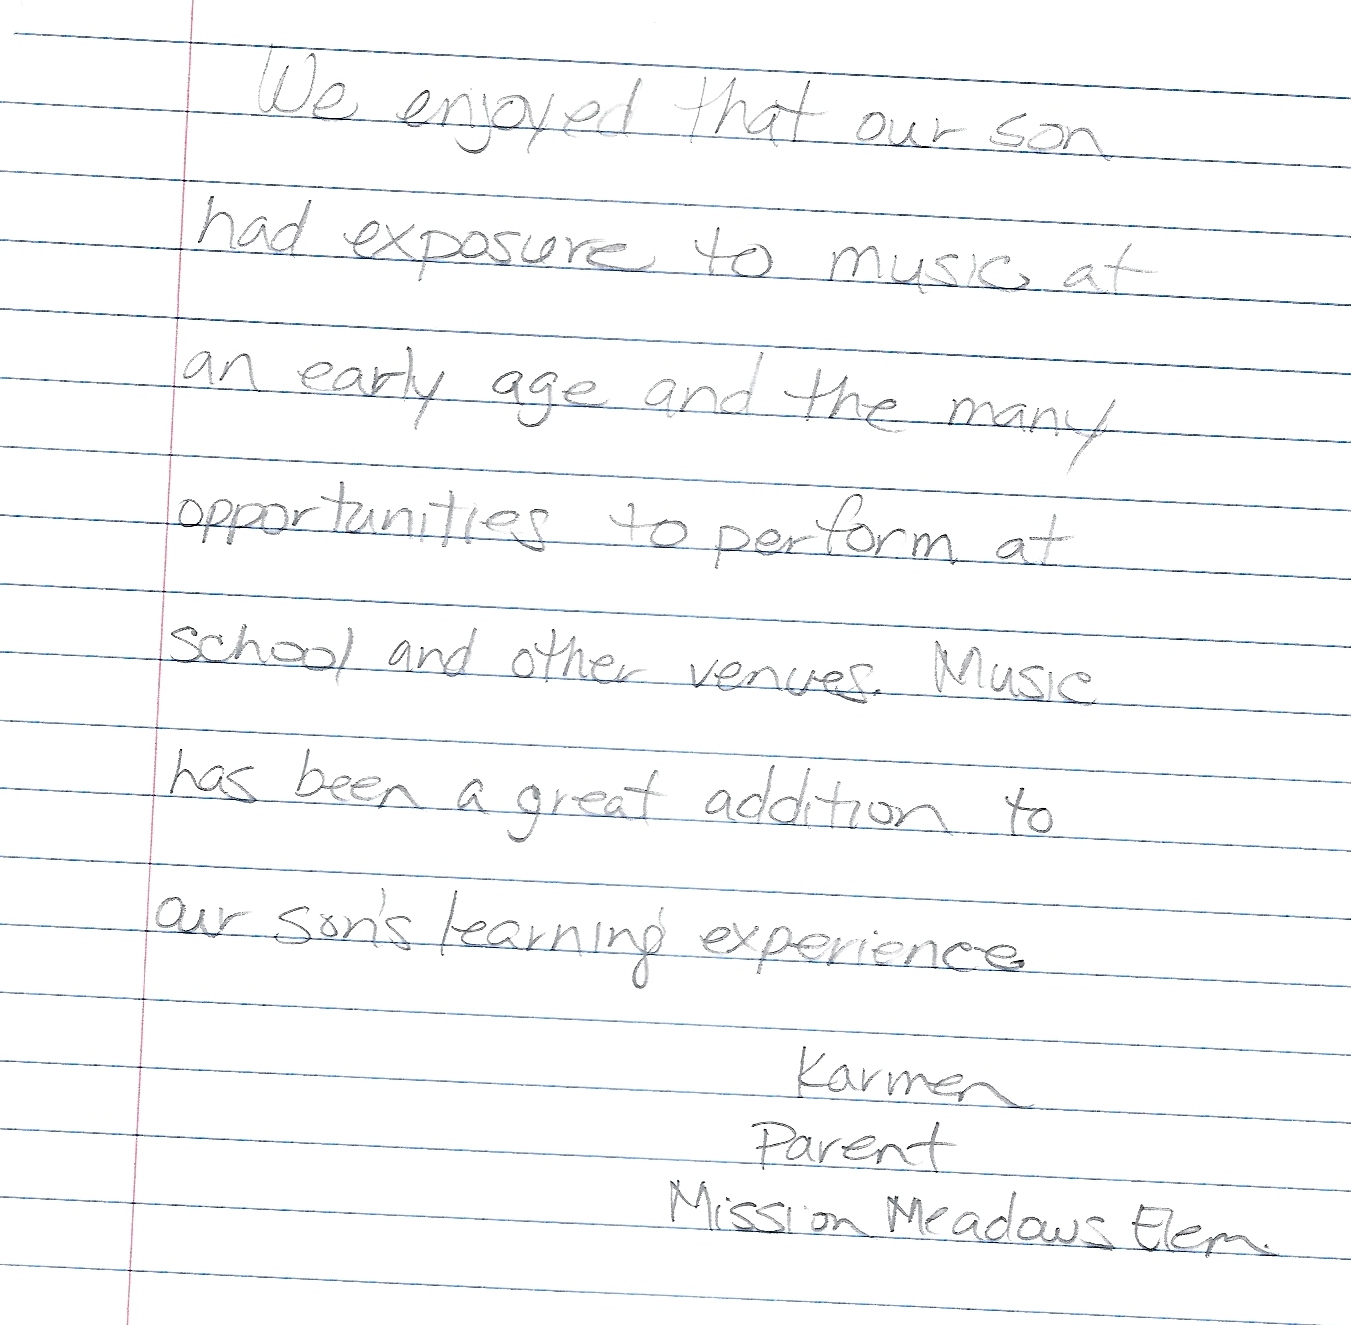 We enjoyed that our son
had exposure to music at
an early age and the many
opportunities to perform at
school and other venues. Music
has been a great addition to
our son's learning experience.
Karmen
Parent
Mission Meadows Elem.